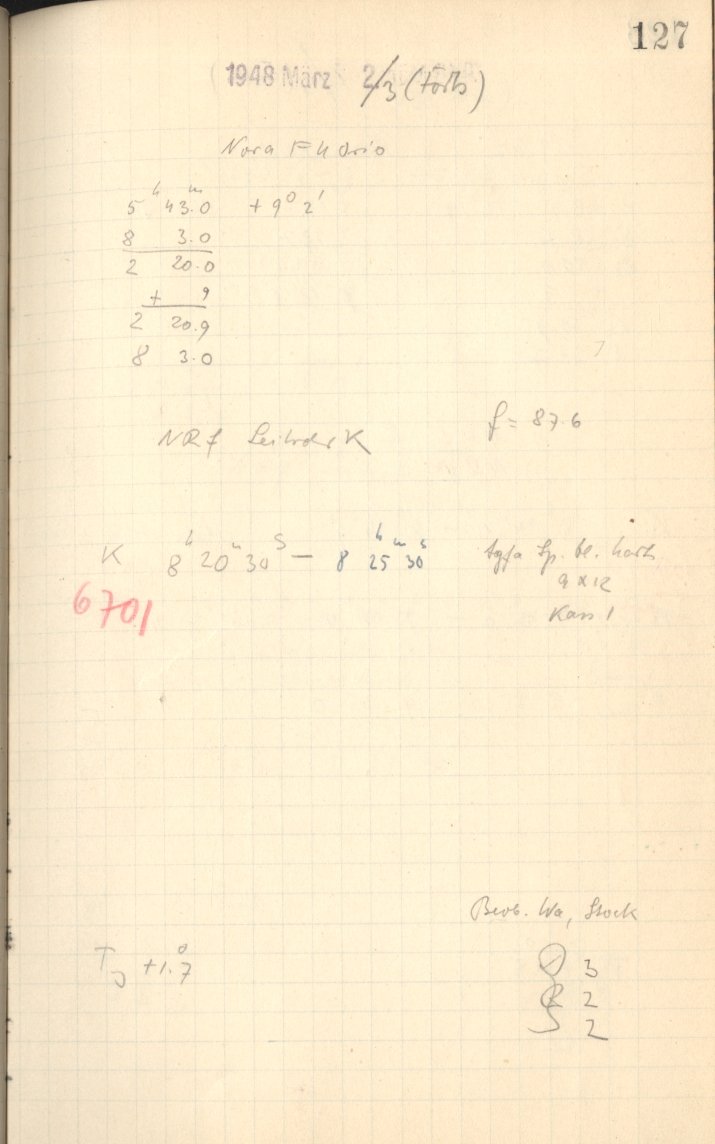 127
1948 März 2/3 (Forts)
Nova FU Orio
5 h 43.0 m + 9° 2'
8 3.0
2 20.0
+ 9
2 20.9
8 3.0
NRf K
f = 87.6
K 8 h 20 m 30 s — 8 h 25 m 30 s Agfa Sp. bl. hart
9 x 12
6701
Kass 1
Beob. Wa, Stock
T +1.°7
3
2
2